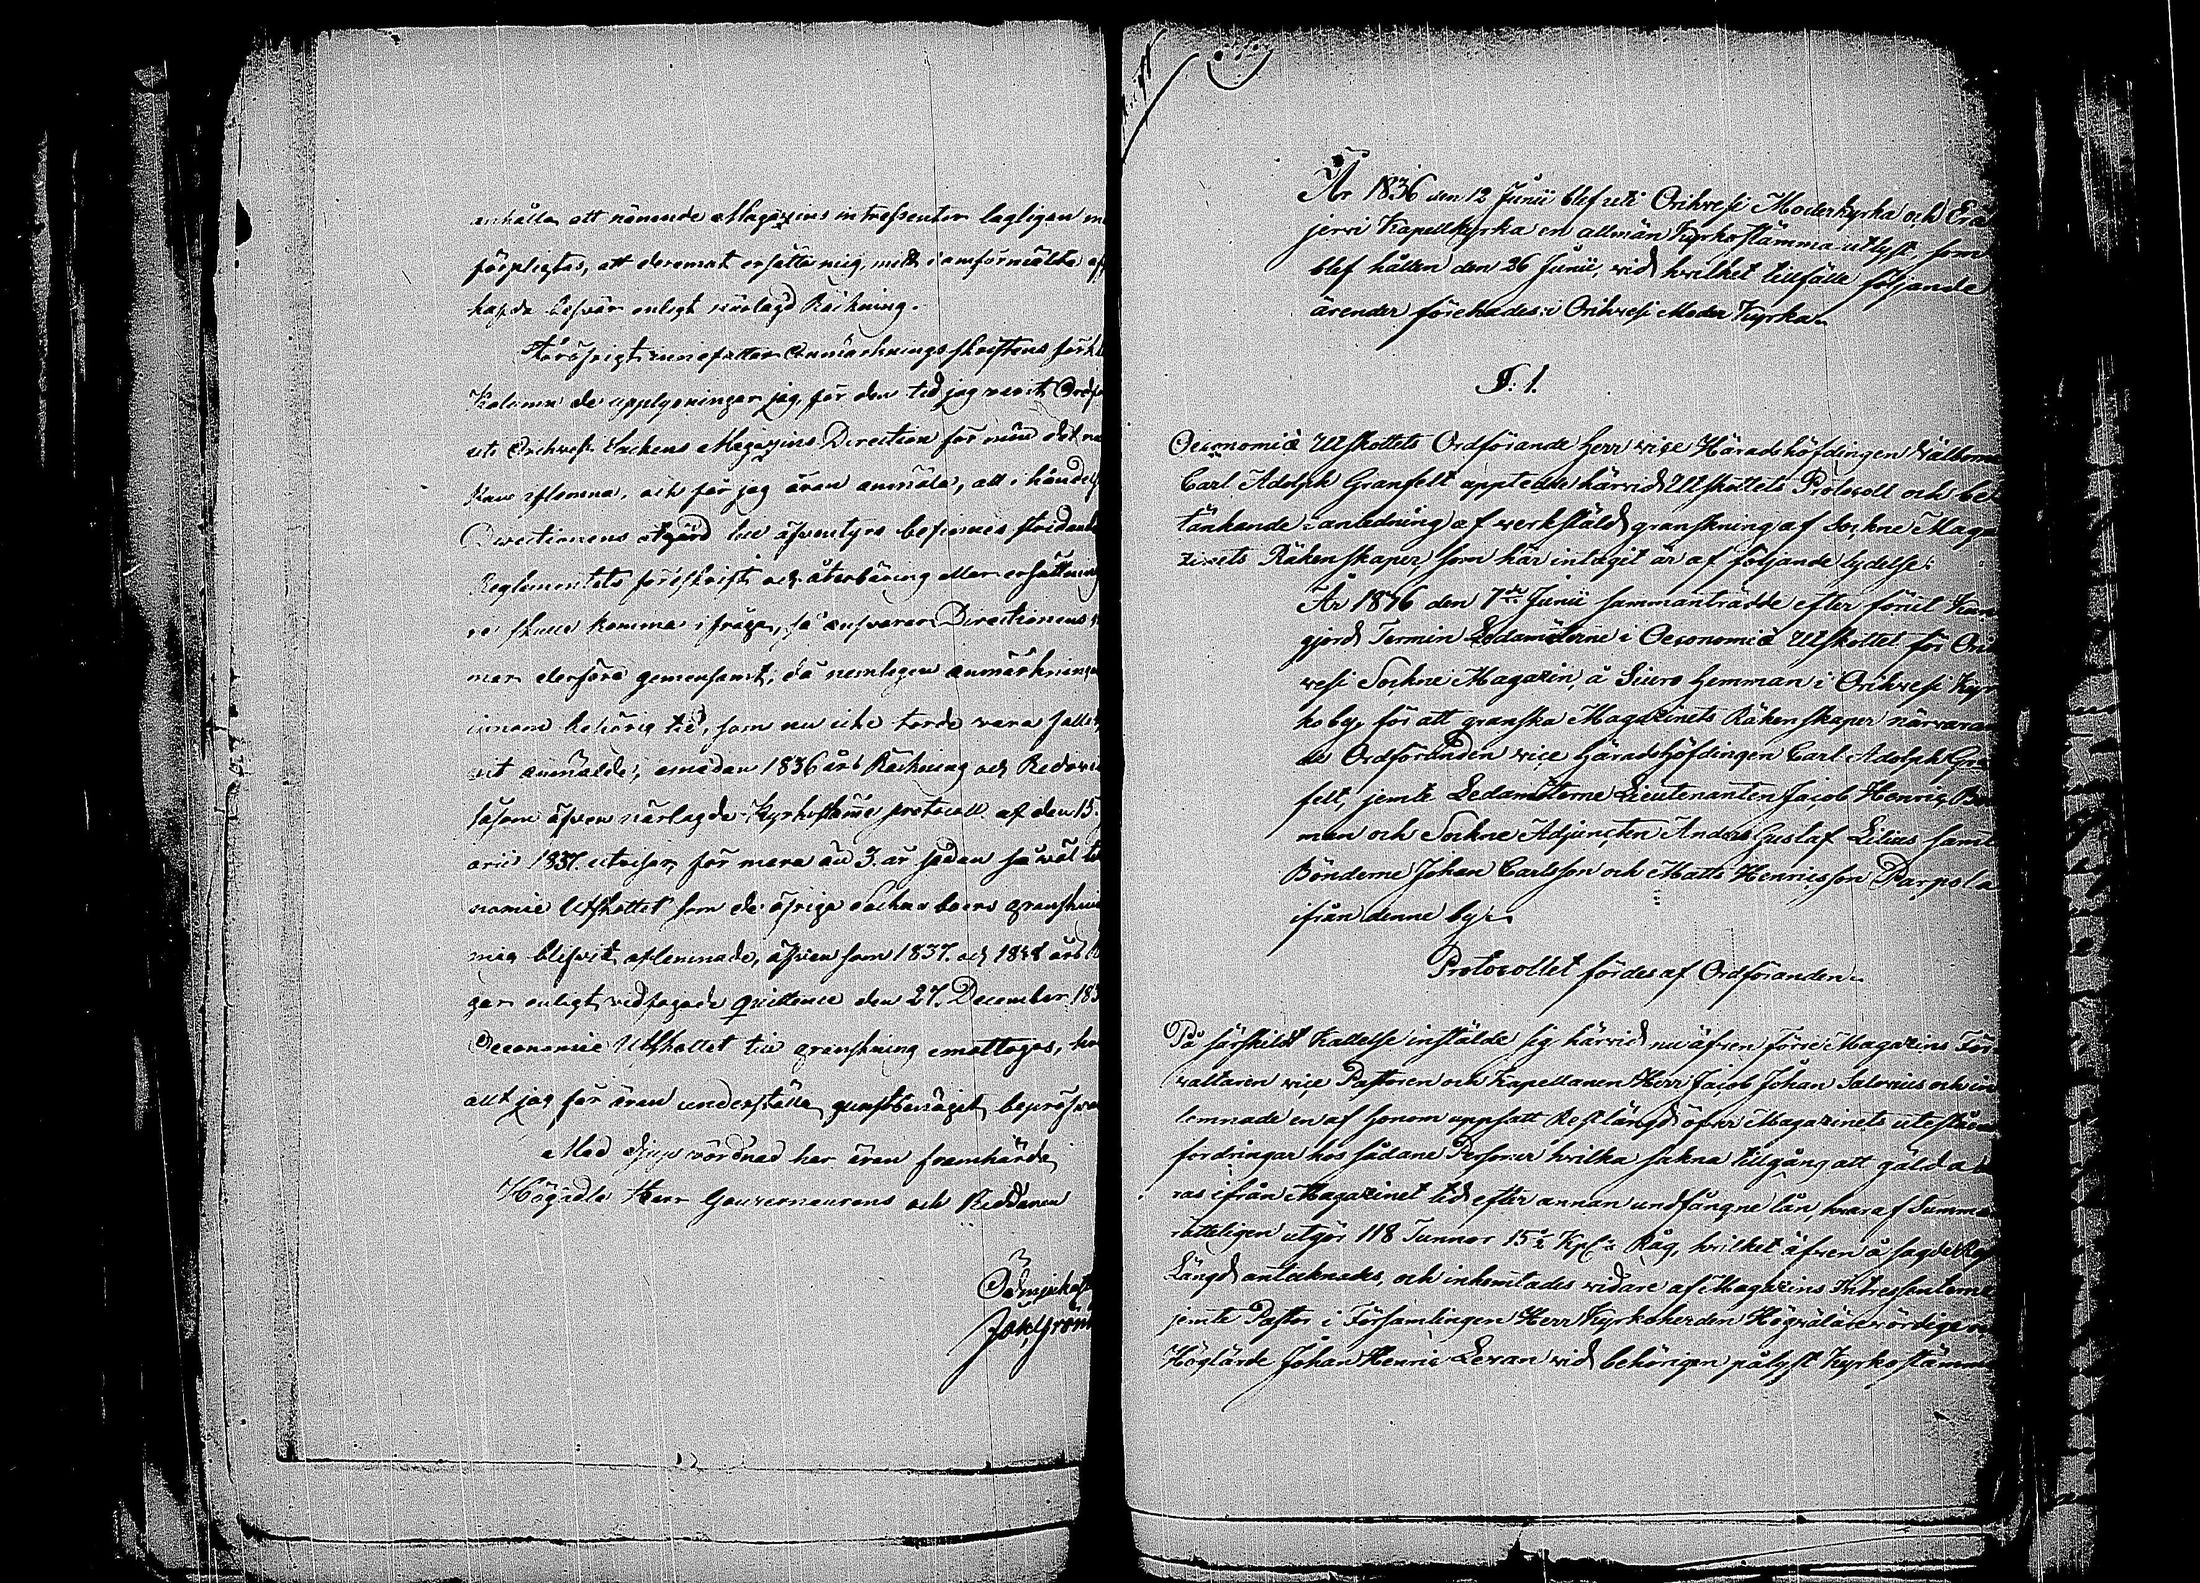 anhålla att nämnde Magazins intressenter lagligen
förpligtas, att deremot ersätta mig, med i omförmälta
hafde besvär enligt närlagd Räkning.
Föröfrigt innefattar Anmärknings skriftens
Kolumn de upplysningar jag, för den tid jag varit
uti Orihvesi Sockens Magazins Direction för min del
kan aflemna, och får jag äran anmäla, att i händelse
Directionens åtgärd till äfventyrs befinnes
Reglementets föreskrift och återbäring eller ersättning
skulle komma i fråga, så ansvarar Directionens
derföre gemensamt, då nemligen anmärkningar
innom behörig tid, som nu icke torde vara fallet,
anmälde, emedan 1836 års Räkning och
såsom äfven närlagde Kyrkostämme protocoll af den 15.
1837. utvisar, för mera än 3. år sedan så väl
nomie Utskottet som de öfrige Sockne boers
mig blifvit aflemnade, äfven som 1837. och års
gar enligt vidfogade quittence den 27. December
Oeconomie Utskottet till granskning emottogos,
allt jag får äran underställa gunstbenäget
Med djup vördnad har äran framhärda
Högädle Herr Gouverneurens och Riddaren
Ödmjukaste
År 1836 den 12 Junii blef uti Orihvesi Moderkyrka och Erä
jervi Kapellkyrka en allmän Kyrkostämma utlyst, som
blef hållen den 26 Junii, vid hvilket tillfälle följande
ärender förehades i Orihvesi Moder Kyrka.
§. 1.
Oeconomiæ Utskottets Ordförande Herr vice Häradshöfdingen
Carl Adolph Granfelt upptedde härvid Utskottets Protocoll och be
tänkande i anledning af verkstäld granskning af Sockne Maga
zinets Räkenskaper, som här intagit är af följande lydelse:
År 1836 den 7de Junii sammanträdde efter förut
gjord Termin Ledamöterne i Oeconomiæ Utskottet för Ori
vesi Sockne Magazin, å Siuro Hemman i Orihvesi Kyr
koby, för att granska Magazinets Räkenskaper närvaran
de Ordföranden vice Häradshöfdingen Carl Adolph Gran
felt, jemte Ledamöterne Lieutenanten Jacob Henric
man och Sockne Adjuncten Anders Gustaf Lilius samt
Bönderne Johan Carlsson och Matts Henricsson Parpola
ifrån denne by.
Protocollet fördes af Ordföranden.
På särskildt Kallelse instälde sig härvid nu äfven förre Magazins För
valtaren vice Pastoren och Kapellanen Herr Jacob Johan Salovius och in
lemnade en af honom uppsatt Restlängd öfver Magazinets utestående
fordringar hos sådane Personer hvilka sakna tillgång att gälda
ras ifrån Magazinet tid efter annan undfångne lån, hvaraf Summan
rätteligen utgör 118 Tunnor 15½ Kpr Råg, hvilket äfven å sagde Rest
Längd antecknades, och inhemtades vidare af Magazins Intressenterne
jemte Pastor i Församlingen Herr Kyrkoherden Högvälärevördige och
Höglärde Johan Henric Levan vid behörigen pålyst Kyrkostämma